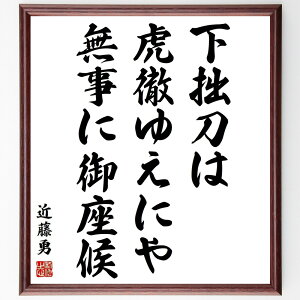 下拙刀は
虎徹ゆえにや
無事に御座候
近藤勇